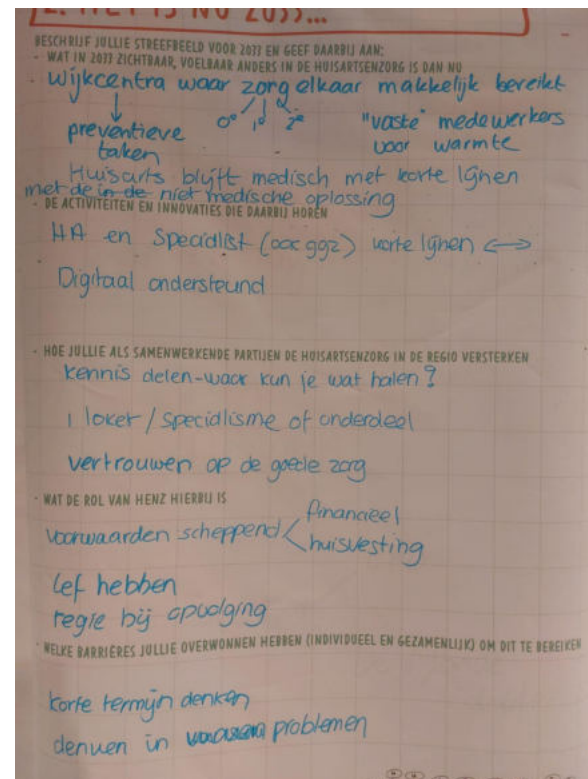 2. HET IS NU 2033...
BESCHRIJF JULLIE STREEFBEELD VOOR 2033 EN GEEF DAARBIJ AAN:
- WAT IN 2033 ZICHTBAAR, VOELBAAR ANDERS IN DE HUISARTSENZORG IS DAN NU
wijkcentra waar zorg elkaar makkelijk bereikt
0e 1e 2e
preventieve taken
"vaste" medewerkers
voor warmte
Huisarts blijft medisch met korte lijnen
met de in de niet medische oplossing
- DE ACTIVITEITEN EN INNOVATIES DIE DAARBIJ HOREN
HA en Specialist (ook ggz) korte lijnen <->
Digitaal ondersteund
- HOE JULLIE ALS SAMENWERKENDE PARTIJEN DE HUISARTSENZORG IN DE REGIO VERSTERKEN
kennis delen - waar kun je wat halen?
1 loket / specialisme of onderdeel
vertrouwen op de goede zorg
- WAT DE ROL VAN HENZ HIERBIJ IS
voorwaarden scheppend < financieel
huisvesting
lef hebben
regie bij opvolging
- WELKE BARRIÈRES JULLIE OVERWONNEN HEBBEN (INDIVIDUEEL EN GEZAMENLIJK) OM DIT TE BEREIKEN
korte termijn denken
denken in problemen